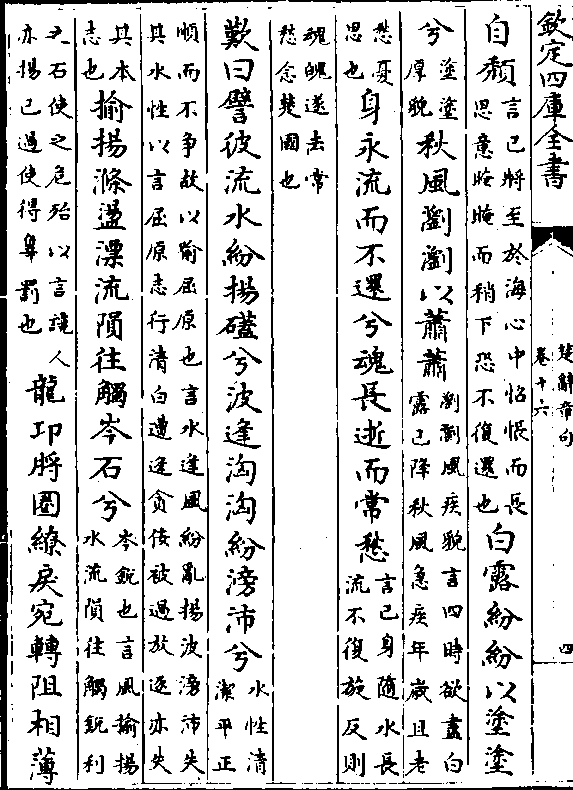 欽定四庫全書
楚辭章句
卷十六
四
自頽言已將至於海心中悵恨而長
思意晻晻而稍下恐不復還也白露紛紛以塗塗
兮塗塗厚貌秋風瀏瀏以蕭蕭瀏瀏風疾貌言四時欲盡白
露已降秋風急疾年歲且老
愁憂思也身永流而不還兮魂長逝而常愁言已身隨水長
流不復旋反則
魂魄遂去常
愁念楚國也
歎曰譬彼流水紛揚磕兮波逢洶洶紛滂沛兮水性清
潔平正
順而不争故以喻屈原也言水逢風紛亂揚波滂沛失
其水性以言屈原志行清白遭逢貪佞被過放逐亦失
其本志也揄揚滌盪漂流隕往觸岑石兮岑銳也言風揄揚
水流隕往觸銳利
之石使之危殆以言讒人
亦揚已過使得辠罰也龍卭脟圈繚戾宛轉阻相薄